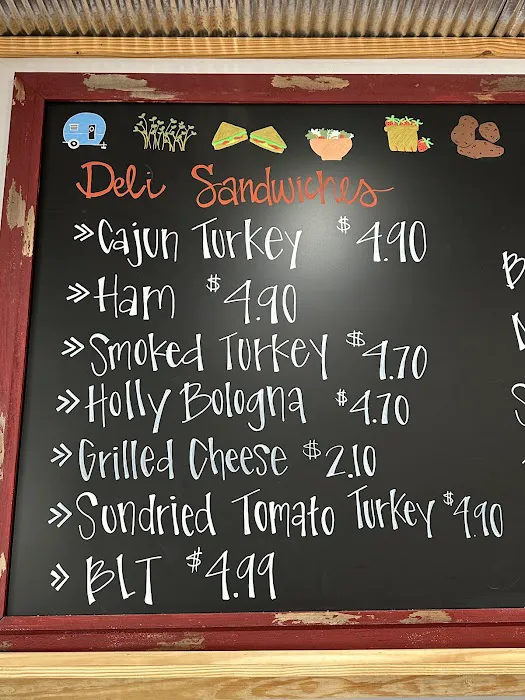 Deli Sandwiches
»Cajun Turkey $4.90
»Ham $4.90
»Smoked Turkey $4.70
»Holly Bologna $4.70
»Grilled Cheese $2.10
»Sundried Tomato Turkey $4.90
»BLT $4.99